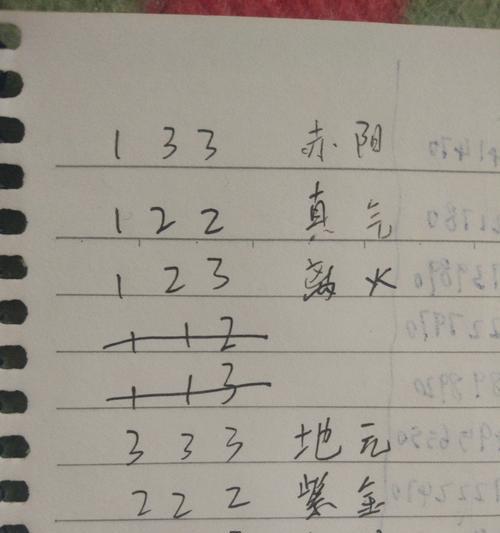 133 赤阳
122 真气
123 离火
112
113
333 地元
222 紫金